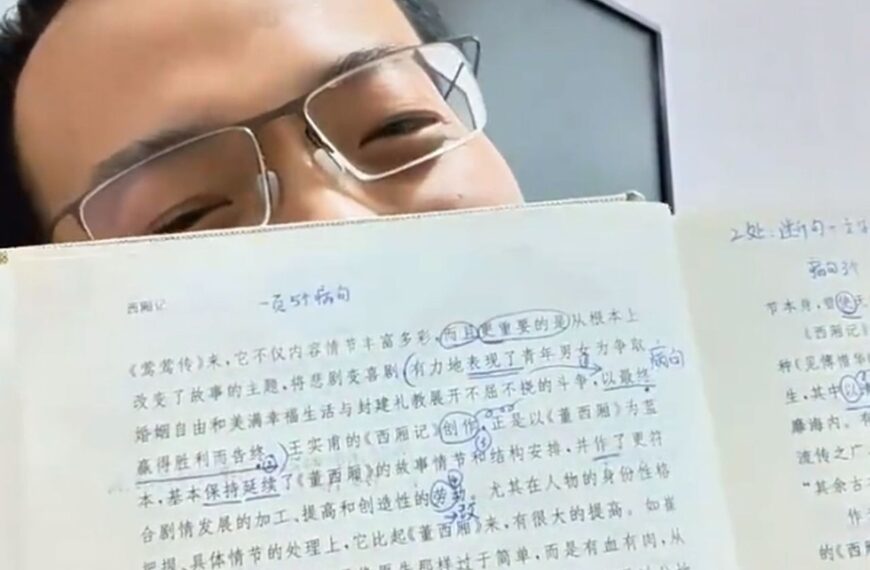 西厢记
一页5个病句
《莺莺传》来,它不仅内容情节丰富多彩,而且更重要的是从根本上
改变了故事的主题,将悲剧变喜剧(有力地表现了青年男女为争取
病句
婚姻自由和美满幸福生活与封建礼教展开不屈不挠的斗争,以最终
赢得胜利而告终。)王实甫的《西厢记》创作,正是以《董西厢》为蓝
本,基本保持延续了《董西厢》的故事情节和结构安排,并作了更符
合剧情发展的加工、提高和创造性的劳动。尤其在人物的身份性格
改
把握、具体情节的处理上,它比起《董西厢》来,有很大的提高。如崔
那样过于简单,而是有血有肉,从
2处:断句
病句3个
节本身,曾
《西厢记》
种《见
生,其中以
廉海内。有
流传之广
"其余古
作
的《西厢